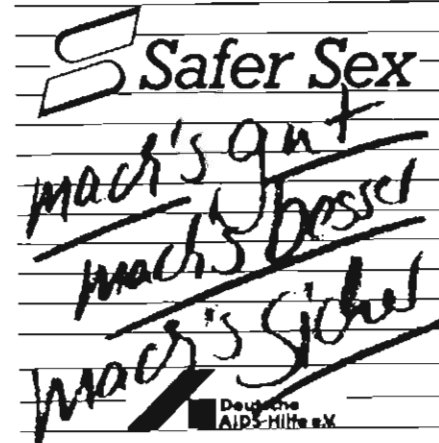 Safer Sex
mach's gut
mach's besser
mach's sicher
Deutsche
AIDS-Hilfe e.V.